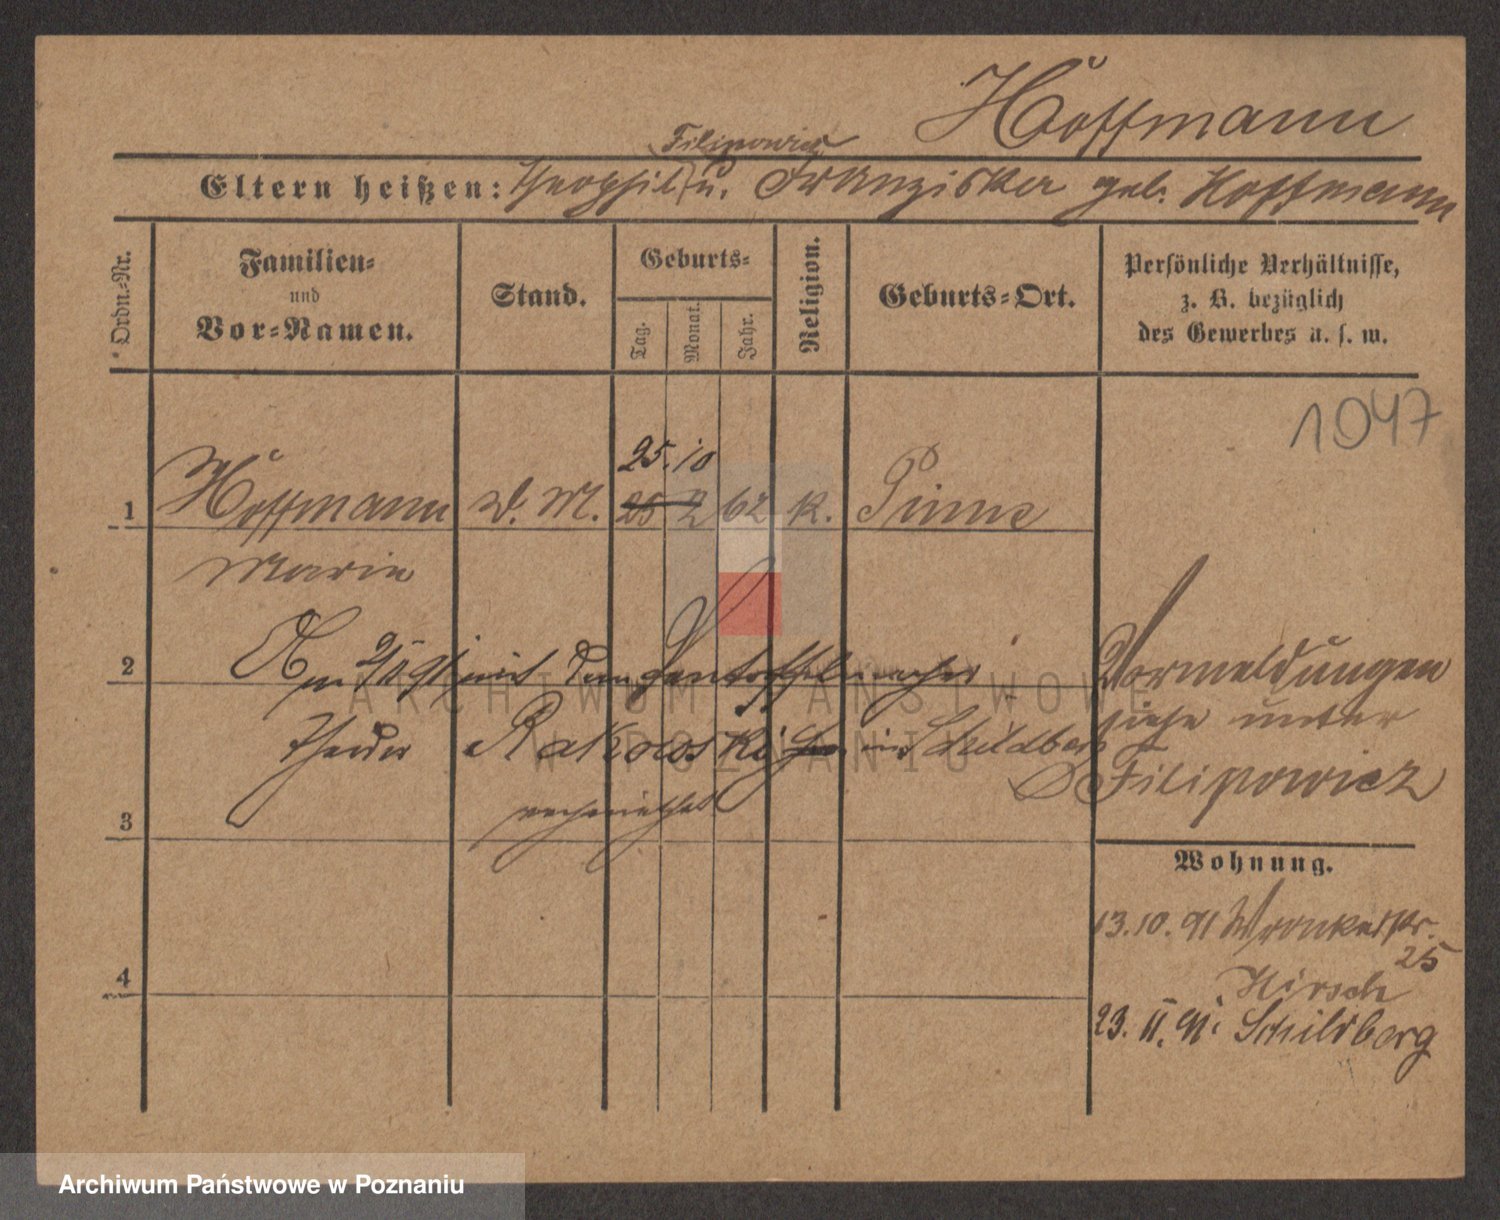 Hoffmann
Filipowicz
Eltern heißen: Theophil u. Franziska geb. Hoffmann
Ordn.-Nr.
Familien-
und
Vor-Namen.
Stand.
Geburts-
Tag.
Monat.
Jahr.
Religion.
Geburts-Ort.
Persönliche Verhältnisse,
z. B. bezüglich
des Gewerbes u. s. w.
1047
25. 10
1 Hoffmann d. M. 25 2 62 k. Pinne
Marie
2 Am mit dem Pantoffelmacher
Theodor Rakowski in Schildberg
verheirathet
3
4
Vormeldungen
siehe unter
Filipowicz
Wohnung.
13.10.91 Wronkerstr.
25
Hirsch
23. 11. 91. Schildberg
ARCHIWUM PAŃSTWOWE
W POZNANIU
Archiwum Państwowe w Poznaniu